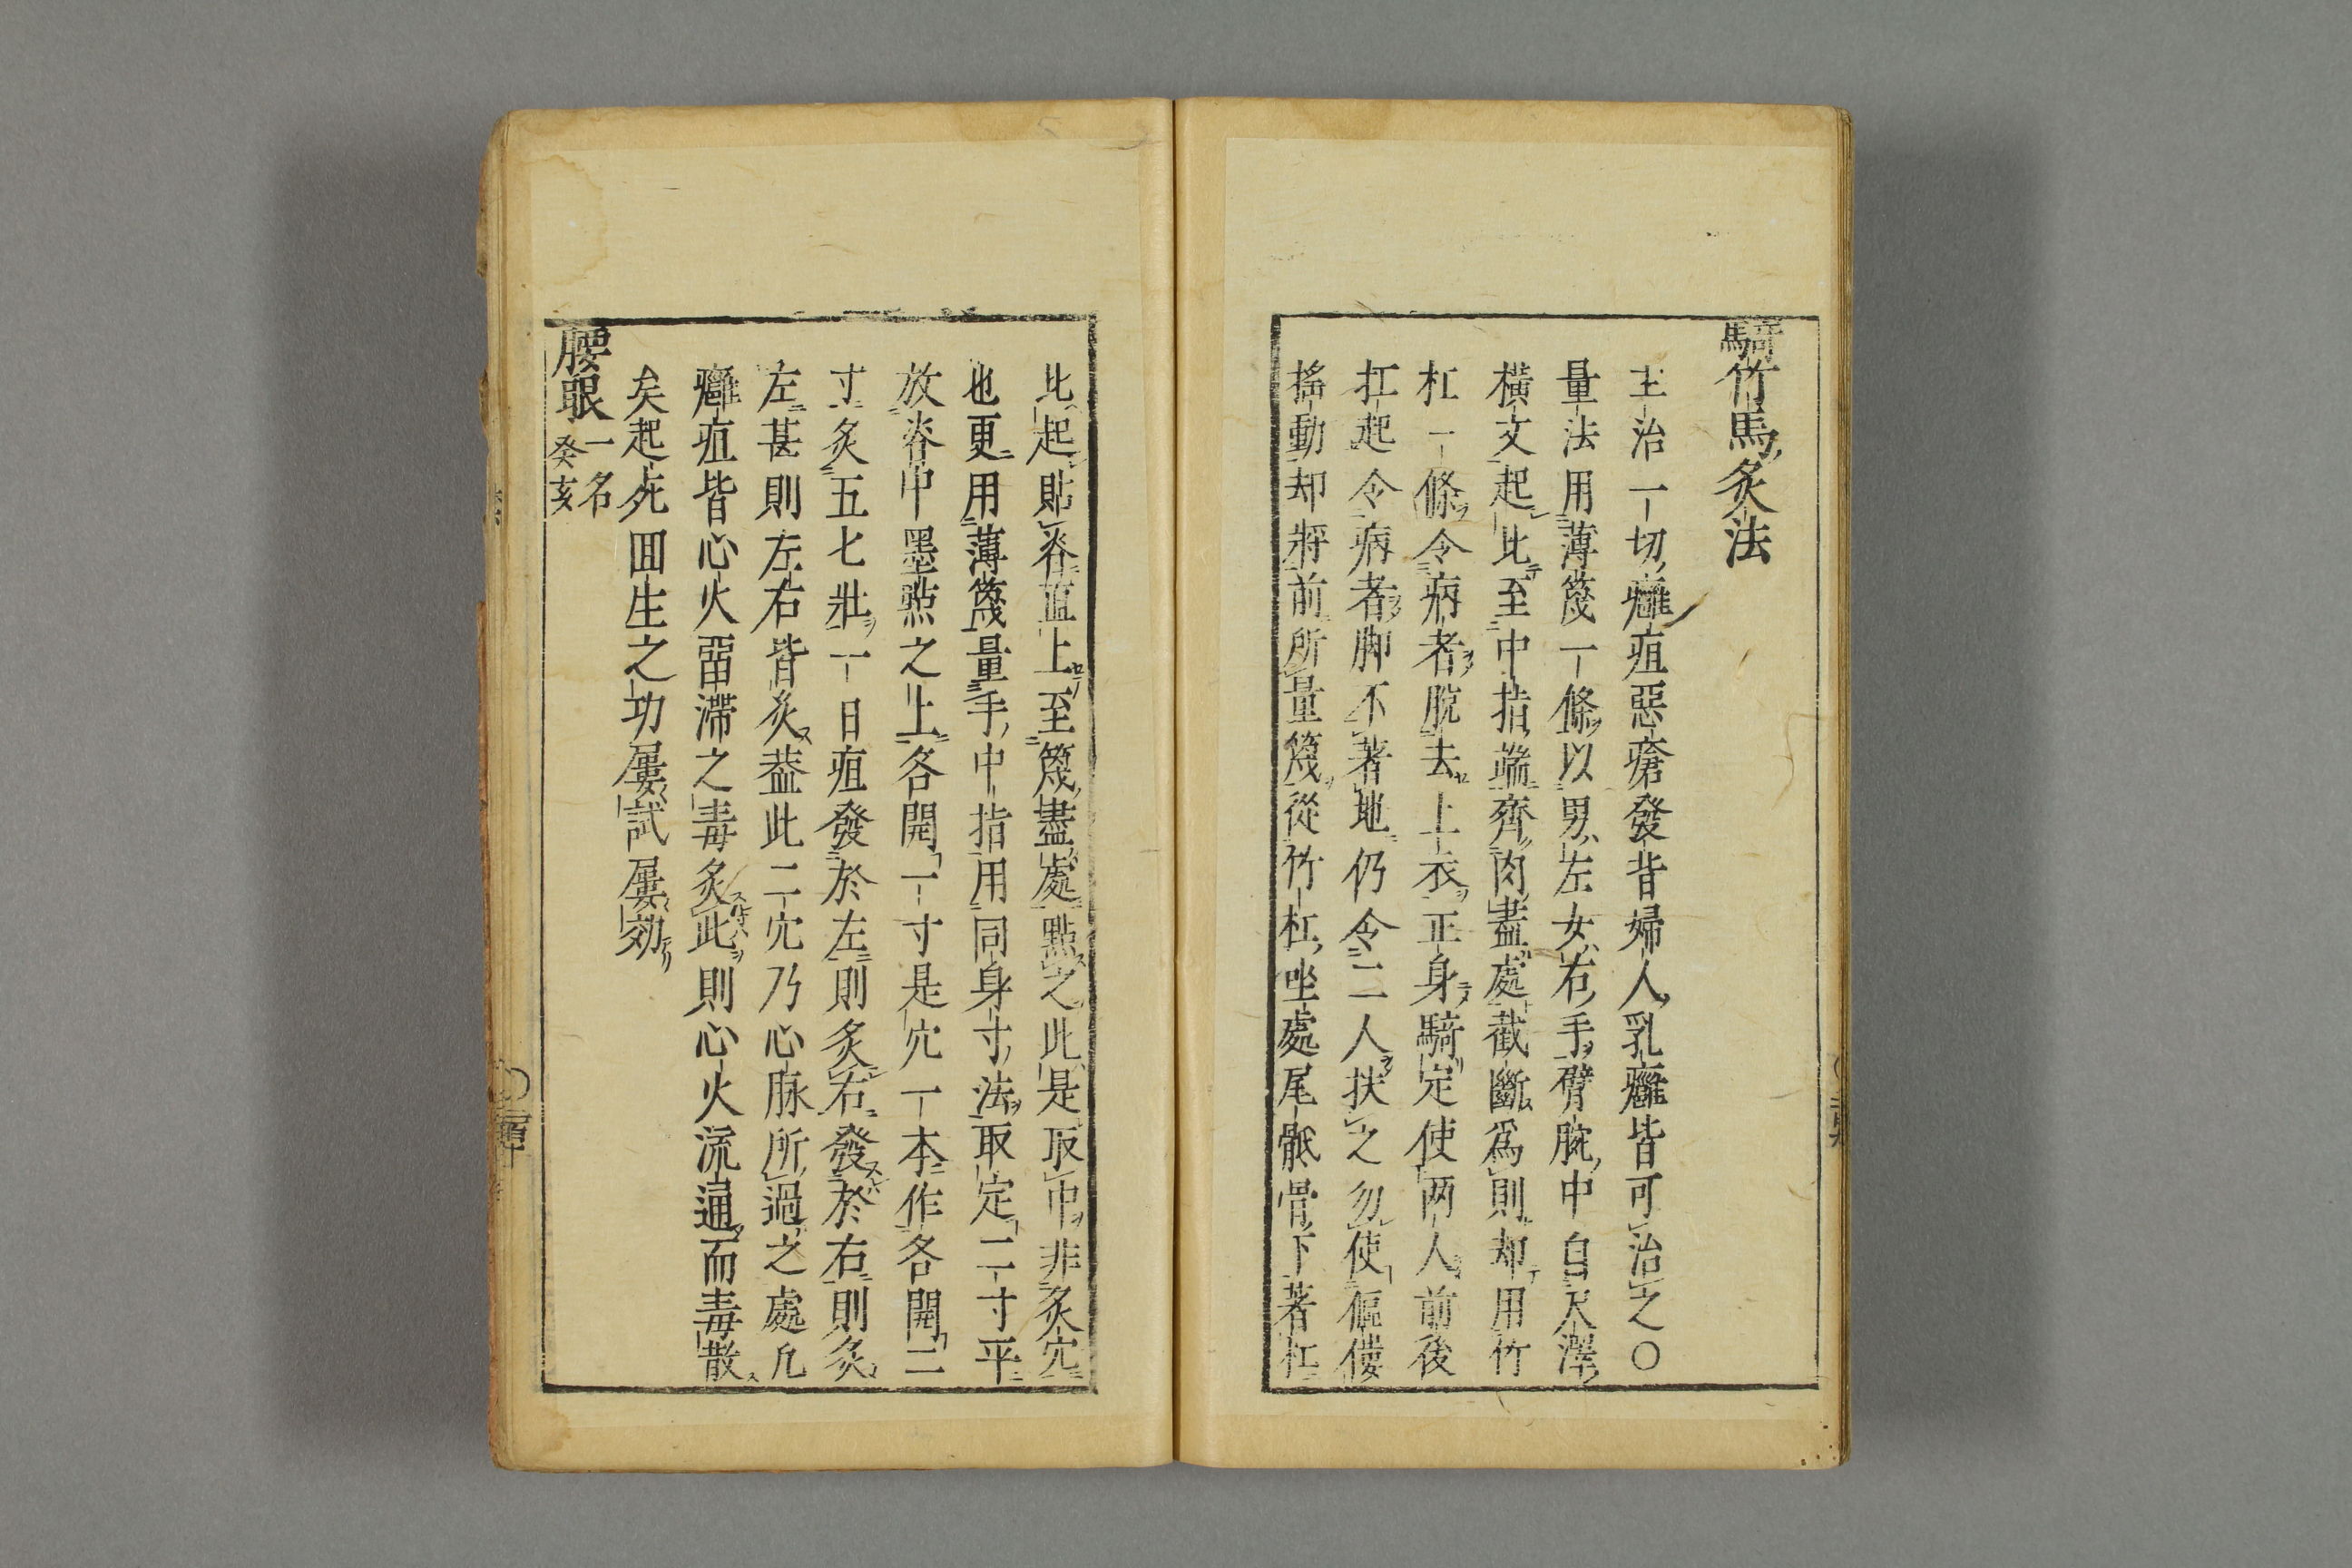 騎竹馬灸法
主治一切癰疽惡瘡發背婦人乳癰皆可治之〇
量法用薄篾一條以男左女右手臂腕中自尺澤
橫文起比至中指端齊肉盡處截斷爲則却用竹
杠一條令病者脫去上衣正身騎定使两人前後
扛起令病者脚不著地仍令二人扶之勿使傴僂
搖動却將前所量篾從竹杠坐處尾骶骨下著杠
比起貼脊直上至篾盡處點之此是取中非灸穴
也更用薄篾量手中指用同身寸法取定二寸平
放脊中墨點之上各開一寸是穴一本作各開二
寸灸五七壯一日疽發於左則灸右發於右則灸
左甚則左右皆灸葢此二穴乃心脉所過之處凢
癰疽皆心火畱滯之毒灸此則心火流通而毒散
矣起死囬生之功屢試屢効
腰眼 一名
癸亥